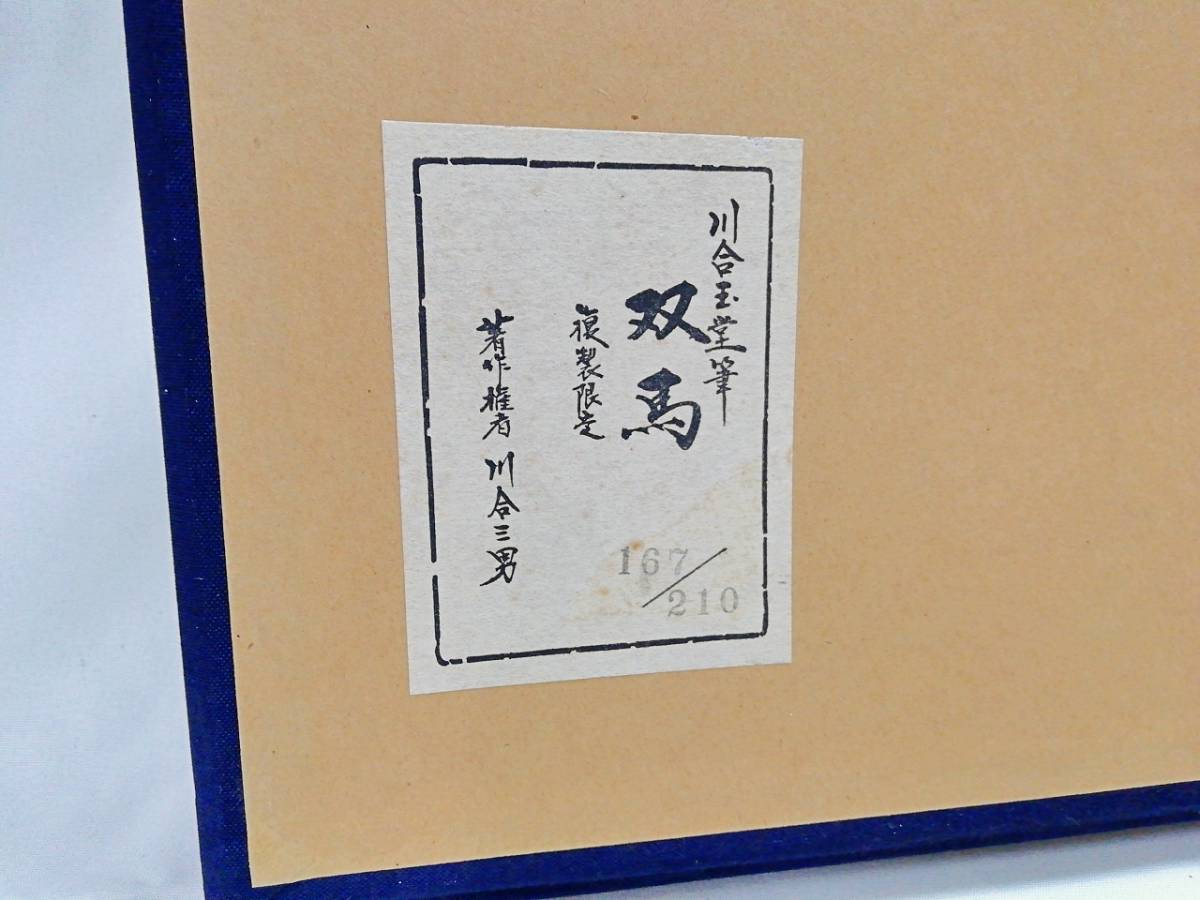 川合玉堂筆
双馬
複製限定
著作権者 川合三男
167/210